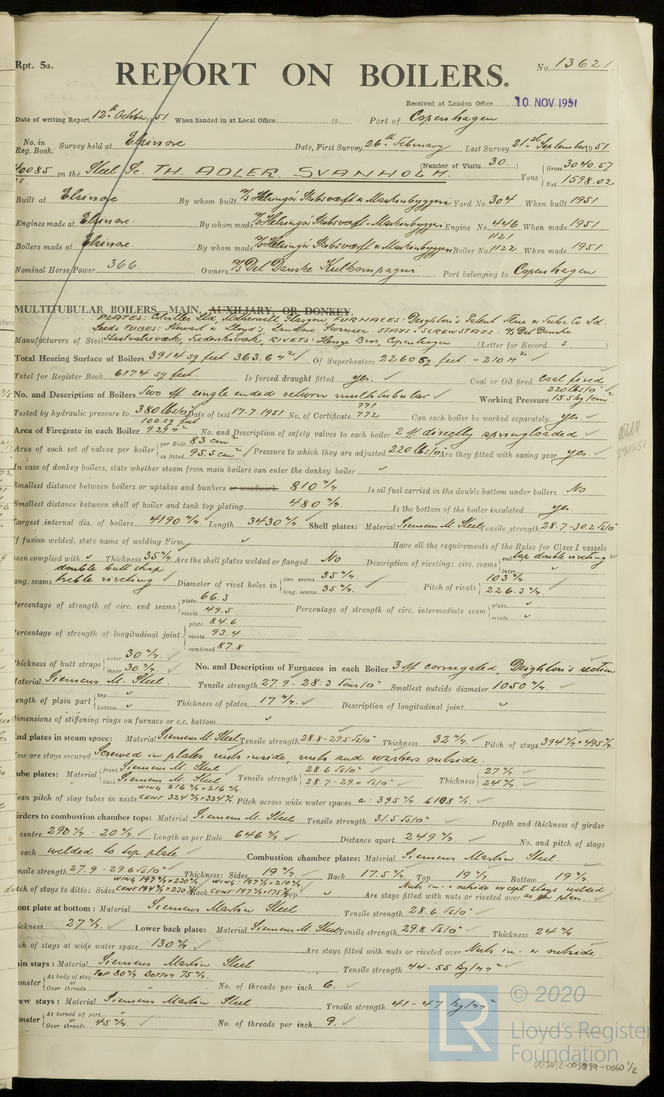 Rpt. 5a.
No. 13621
REPORT ON BOILERS.
Received at London Office 10 NOV 1951
Date of writing Report 12th October 1951 When handed in at Local Office 19 Port of Copenhagen
No. in Reg. Book. Survey held at Elsinore Date, First Survey 26th February Last Survey 21st September 1951
40085 on the Steel Sc. TH. ADLER SVANHOLM. (Number of Visits 30) Tons Gross 3040.57 Net 1598.02
Built at Elsinore By whom built A/S Helsingørs Skibsværft & Maskinbyggeri Yard No. 304 When built 1951
Engines made at Elsinore By whom made A/S Helsingørs Skibsværft & Maskinbyggeri Engine No. 446 When made 1951
Boilers made at Elsinore By whom made A/S Helsingørs Skibsværft & Maskinbyggeri Boiler No. 1121 1122 When made 1951
Nominal Horse Power 366 Owners A/S Det Danske Kulkompagni Port belonging to Copenhagen
MULTITUBULAR BOILERS, MAIN, AUXILIARY, OR DONKEY.
PLATES: Ltd, Motherwell Glasgow, FURNACES: Deighton's Patent Flue & Tube Co Ld.
Leeds TUBES: Stewart & Lloyd's, Landore Swansea. STAYS & SCREWSTAYS: A/S Det Danske
Manufacturers of Steel Staalvalseværk, Frederiksværk, RIVETS: Bros, Copenhagen (Letter for Record S)
Total Heating Surface of Boilers 3914 sq feet 363.6 m² Of Superheaters 2260 sq. feet - 210 m²
Total for Register Book 6174 sq feet Is forced draught fitted yes. Coal or Oil fired Coal fired
No. and Description of Boilers Two off single ended return multitubular Working Pressure 220 lbs/□" 15.5 kg/cm²
Tested by hydraulic pressure to 380 lbs/□" Date of test 17.7.1951 No. of Certificate 771 772 Can each boiler be worked separately yes
Area of Firegrate in each Boiler 100 sq feet 9.29 m² No. and Description of safety valves to each boiler 2 off directly springloaded
Area of each set of valves per boiler per Rule 83 cm² as fitted 95.5 cm² Pressure to which they are adjusted 220 lbs/□" Are they fitted with easing gear yes
In case of donkey boilers, state whether steam from main boilers can enter the donkey boiler
Smallest distance between boilers or uptakes and bunkers or woodwork 810 m/m. Is oil fuel carried in the double bottom under boilers No
Smallest distance between shell of boiler and tank top plating 480 m/m. Is the bottom of the boiler insulated yes.
Largest internal dia. of boilers 4190 m/m Length 3430 m/m Shell plates: Material Siemens M. Steel Tensile strength 28.7-30.2 Ts/□"
If fusion welded, state name of welding Firm Have all the requirements of the Rules for Class I vessels
been complied with Thickness 35 m/m Are the shell plates welded or flanged No Description of riveting: circ. seams lap double riveting
long. seams double butt strap treble riveting Diameter of rivet holes in circ. seams 35 m/m long. seams 35 m/m Pitch of rivets 103 m/m 226.3 m/m
Percentage of strength of circ. end seams plate 66.3 rivets 49.5 Percentage of strength of circ. intermediate seam plate rivets
Percentage of strength of longitudinal joint plate 84.6 rivets 93.4 combined 87.8
Thickness of butt straps outer 30 m/m inner 30 m/m No. and Description of Furnaces in each Boiler 3 off corrugated, Deighton's section
Material Siemens M. Steel. Tensile strength 27.9 - 28.3 Tons/□" Smallest outside diameter 1050 m/m.
Length of plain part top bottom Thickness of plates 17 m/m Description of longitudinal joint
Dimensions of stiffening rings on furnace or c.c. bottom
End plates in steam space: Material Siemens M. Steel Tensile strength 28.8-29.5 Ts/□" Thickness 32 m/m Pitch of stays 394 m/m × 495 m/m.
How are stays secured Screwed in plates nuts inside, nuts and washers outside.
Tube plates: Material front Siemens M. Steel back Siemens M. Steel Tensile strength 28.6 Ts/□" 28.7-29.0 Ts/□" Thickness 27 m/m 24 m/m
Mean pitch of stay tubes in nests WING 216 m/m × 216 m/m CENT. 324 m/m × 324 m/m Pitch across wide water spaces a: 395 m/m
Girders to combustion chamber tops: Material Siemens M. Steel Tensile strength 31.5 Ts/□" Depth and thickness of girder
at centre 290 m/m - 20 m/m Length as per Rule 646 m/m Distance apart 249 m/m No. and pitch of stays
in each welded to top plate Combustion chamber plates: Material Siemens Martin Steel.
Tensile strength 27.9 - 29.6 Ts/□" Thickness: Sides 19 m/m Back 17.5 m/m Top 19 m/m Bottom 19 m/m
Pitch of stays to ditto: Sides WING 197 m/m × 230 m/m CENT 194 m/m × 230 m/m Back WING 197 m/m × 210 m/m CENT 197 m/m × 175 m/m Top Are stays fitted with nuts or riveted over Nuts in- & outside except stays welded as per plan.
Front plate at bottom: Material Siemens Martin Steel Tensile strength 28.6 Ts/□"
Thickness 27 m/m Lower back plate: Material Siemens M. Steel Tensile strength 29.8 Ts/□" Thickness 24 m/m
Pitch of stays at wide water space 130 m/m Are stays fitted with nuts or riveted over Nuts in- & outside
Main stays: Material Siemens Martin Steel Tensile strength 44-55 kg/m/m²
Diameter At body of stay, or Over threads TOP 80 m/m BOTTOM 75 m/m. No. of threads per inch 6.
Screw stays: Material Siemens Martin Steel Tensile strength 41-47 kg/m/m²
Diameter At turned off part, or Over threads 45 m/m. No. of threads per inch 9.
© 2020
Lloyd's Register
Foundation
LR
003092-003099-0060 1/2